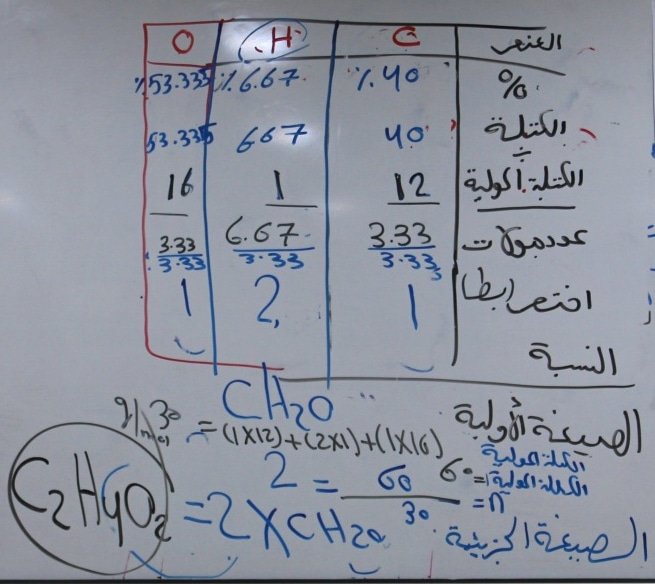 العنصر C H O
% %40 %6.67 %53.335
الكتلة 40 667 53.335
÷
الكتلة المولية 12 1 16
عدد مولات 3.33/3.33 6.67/3.33 3.33/3.33
اختصر ابطا 1 2 1
النسبة
الصيغة الأولية CH2O
= (1X12)+(2X1)+(1X16) 30 g/mol
الكتلة المولية 60
الكتلة المولية
n = 60/30 = 2
الصيغة الجزيئية
C2H4O2 = 2XCH2O